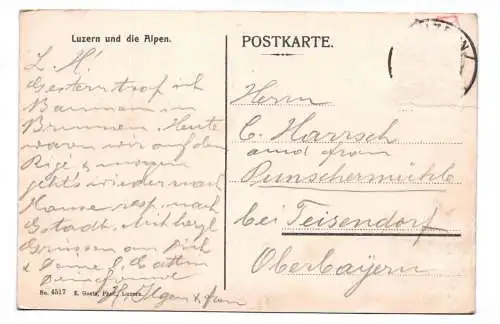 Luzern und die Alpen.
L. H!
Gestern traf ich
Baumann in
Brunnen. Heute
waren wir auf dem
Rigi & morgen
geht's wieder nach
Hause resp. nach
Gstadt. Mit herzl
Grüssen an Dich
& Deine l. Gattin
H. Ilgen & Frau
No. 4517 E. Goetz, Phot., Luzern.
POSTKARTE.
Herrn
C. Harrsch
amd from
Punschermühle
bei Teisendorf
Oberbayern